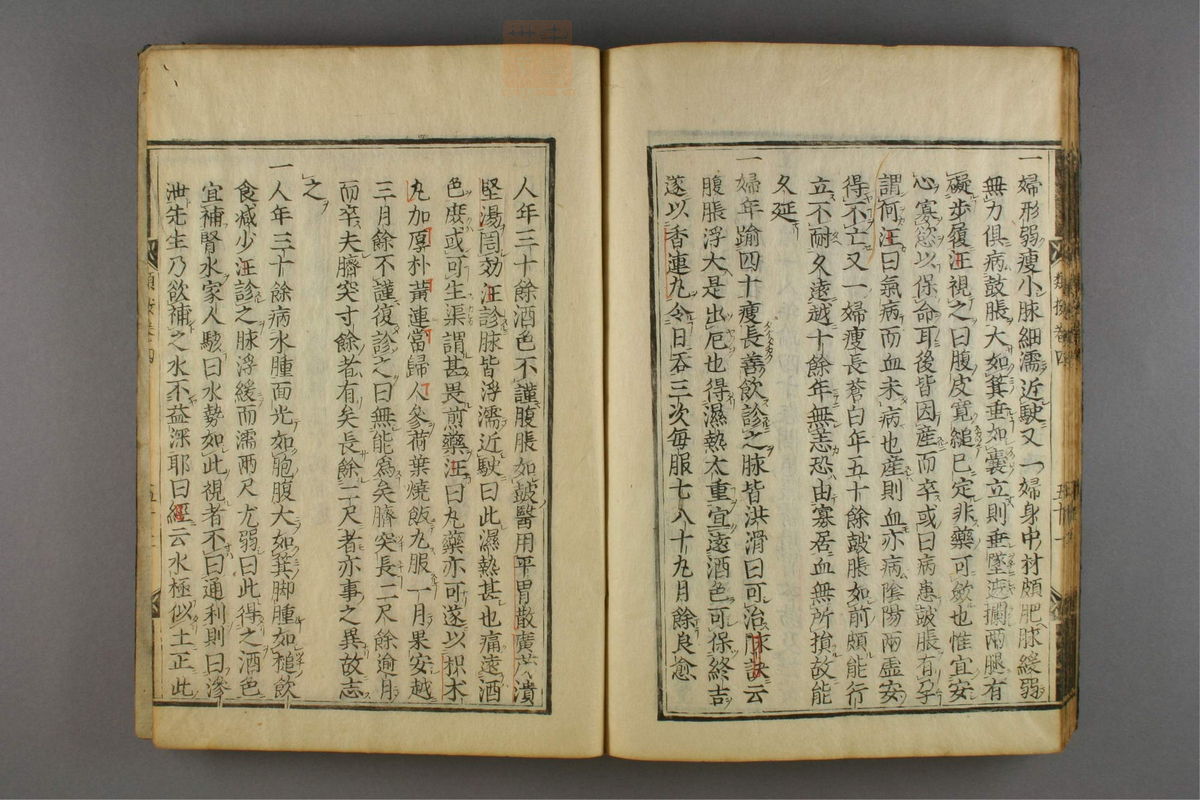 一婦形弱瘦小脉細濡近駛又一婦身中材頗肥脉緩弱
無力俱病鼓脹大如箕垂如囊立則垂墜遮攔兩腿有
礙步履汪視之曰腹皮寬縋已定非藥可斂也惟宜安
心寡慾以保命耳後皆因産而卒或曰病患皷脹有孕
謂何汪曰氣病而血未病也産則血亦病陰陽兩虛安
得不亡又一婦瘦長蒼白年五十餘皷脹如前頗能行
立不耐久遠越十餘年無恙恐由寡居血無所損故能
久延
一婦年踰四十瘦長善飲診之脉皆洪滑曰可治脉訣云
腹脹浮大是出厄也得濕熱太重宜遠酒色可保終吉
遂以香連丸令日吞三次每服七八十丸月餘良愈
類按卷四
五十一
一人年三十餘酒色不謹腹脹如皷醫用平胃散廣茂潰
堅湯罔効汪診脉皆浮濡近駛曰此濕熱甚也痛遠酒
色庶或可生渠謂甚畏煎藥汪曰丸藥亦可遂以枳朮
丸加厚朴黃連當歸人參荷葉燒飯丸服一月果安越
三月餘不謹復診之曰無能爲矣臍突長二尺餘逾月
而卒夫臍突寸餘者有矣長餘二尺者亦事之異故志
之
一人年三十餘病水腫面光如胞腹大如箕脚腫如槌飲
食减少汪診之脉浮緩而濡兩尺尤弱曰此得之酒色
宜補腎水家人駭曰水勢如此視者不曰通利則曰滲
泄先生乃欲補之水不益深耶曰經云水極似土正此
類按卷四